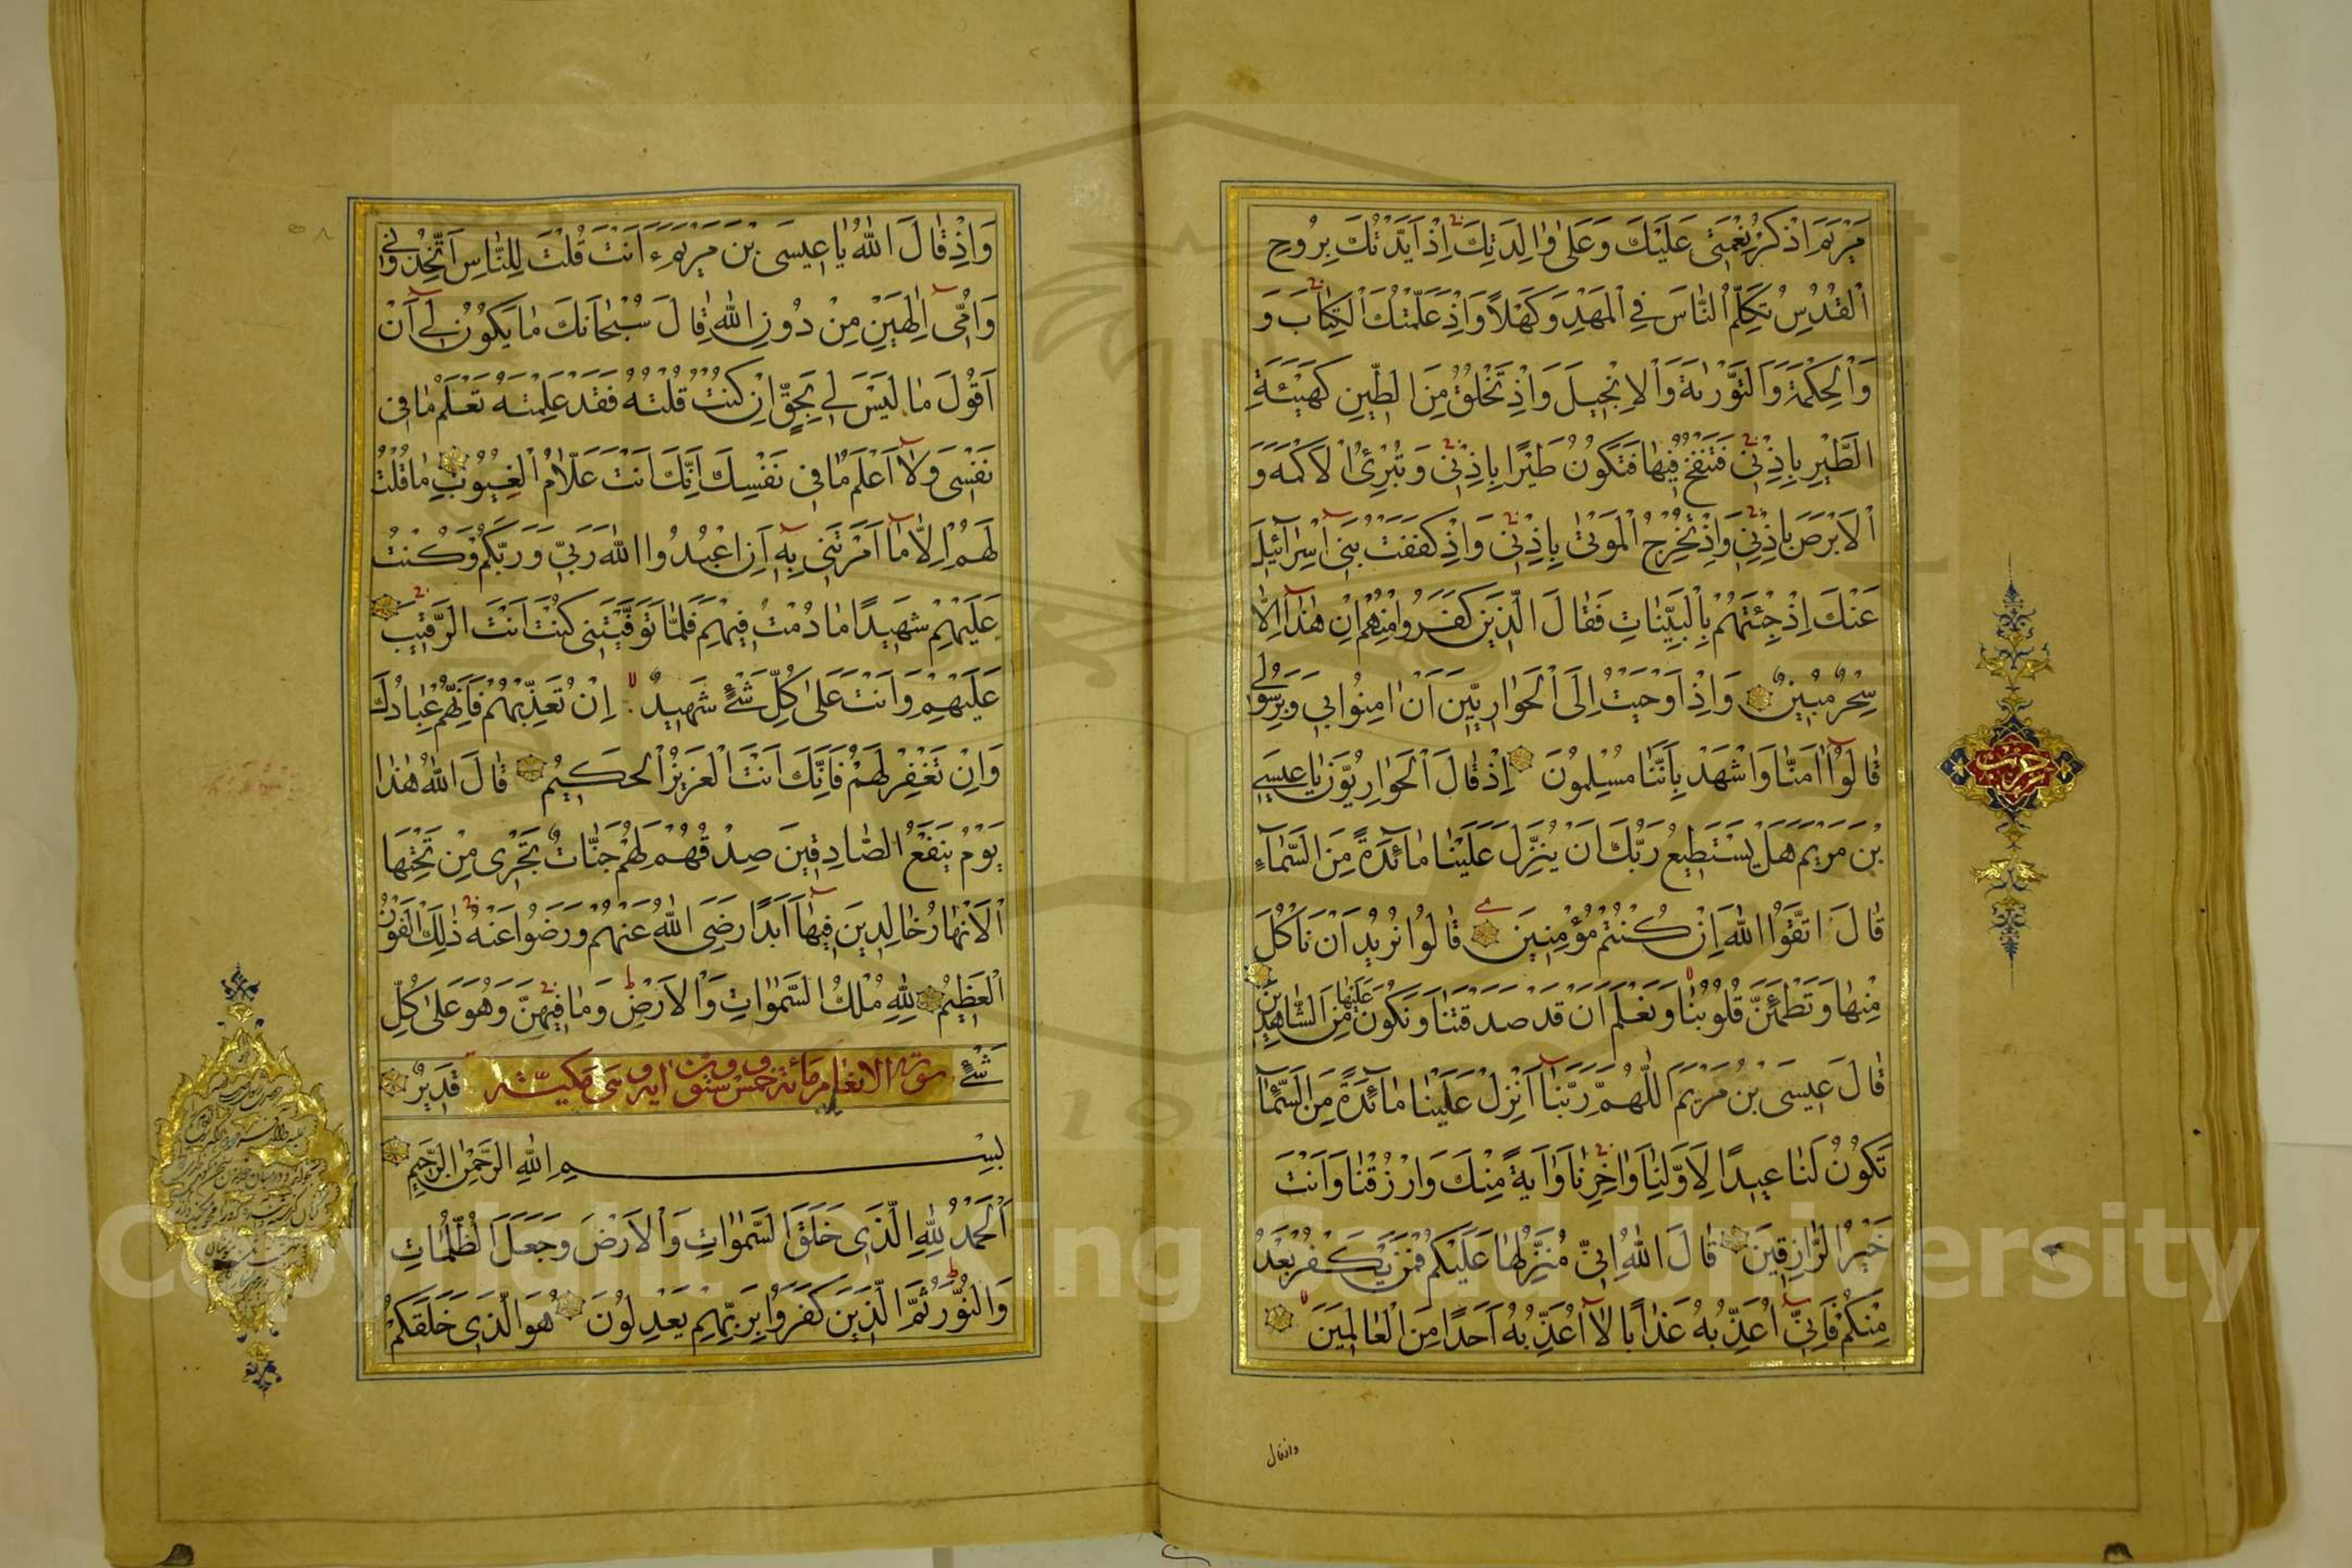 مَرْيَمَ اذْكُرْ نِعْمَتِي عَلَيْكَ وَعَلىٰ وٰالِدَتِكَ اِذْ اَيَّدْتُكَ بِرُوحِ
الْقُدُسِ تُكَلِّمُ النّٰاسَ فِي الْمَهْدِ وَكَهْلاً وَاِذْ عَلَّمْتُكَ الْكِتٰابَ وَ
وَالْحِكْمَةَ وَالتَّوْرٰيةَ وَالْاِنْجِيلَ وَاِذْ تَخْلُقُ مِنَ الطِّينِ كَهَيْئَةِ
الطَّيْرِ بِاِذْنِي فَتَنْفُخُ فِيهٰا فَتَكُونُ طَيْرًا بِاِذْنِي وَتُبْرِئُ الْاَكْمَهَ وَ
الْاَبْرَصَ بِاِذْنِي وَاِذْ تُخْرِجُ الْمَوْتىٰ بِاِذْنِي وَاِذْ كَفَفْتُ بَنِي اِسْرٰآئِيلَ
عَنْكَ اِذْ جِئْتَهُمْ بِالْبَيِّنٰاتِ فَقٰالَ الَّذِينَ كَفَرُوا مِنْهُمْ اِنْ هٰذٰا اِلّٰا
سِحْرٌ مُبِينٌ وَاِذْ اَوْحَيْتُ اِلَى الْحَوٰارِيِّينَ اَنْ اٰمِنُوا بِي وَبِرَسُولِي
قٰالُوا اٰمَنّٰا وَاشْهَدْ بِاَنَّنٰا مُسْلِمُونَ اِذْ قٰالَ الْحَوٰارِيُّونَ يٰا عِيسَى
بْنَ مَرْيَمَ هَلْ يَسْتَطِيعُ رَبُّكَ اَنْ يُنَزِّلَ عَلَيْنٰا مٰآئِدَةً مِنَ السَّمٰآءِ
قٰالَ اتَّقُوا اللّٰهَ اِنْ كُنْتُمْ مُؤْمِنِينَ قٰالُوا نُرِيدُ اَنْ نَأْكُلَ
مِنْهٰا وَتَطْمَئِنَّ قُلُوبُنٰا وَنَعْلَمَ اَنْ قَدْ صَدَقْتَنٰا وَنَكُونَ عَلَيْهٰا مِنَ الشّٰاهِدِينَ
قٰالَ عِيسَى بْنُ مَرْيَمَ اللّٰهُمَّ رَبَّنٰا اَنْزِلْ عَلَيْنٰا مٰآئِدَةً مِنَ السَّمٰآءِ
تَكُونُ لَنٰا عِيدًا لِاَوَّلِنٰا وَاٰخِرِنٰا وَاٰيَةً مِنْكَ وَارْزُقْنٰا وَاَنْتَ
خَيْرُ الرّٰازِقِينَ قٰالَ اللّٰهُ اِنِّي مُنَزِّلُهٰا عَلَيْكُمْ فَمَنْ يَكْفُرْ بَعْدُ
مِنْكُمْ فَاِنِّي اُعَذِّبُهُ عَذٰابًا لٰا اُعَذِّبُهُ اَحَدًا مِنَ الْعٰالَمِينَ
واذقال
حزب
وَاِذْ قٰالَ اللّٰهُ يٰا عِيسَى بْنَ مَرْيَمَ ءَاَنْتَ قُلْتَ لِلنّٰاسِ اتَّخِذُونِي
وَاُمِّي اِلٰهَيْنِ مِنْ دُونِ اللّٰهِ قٰالَ سُبْحٰانَكَ مٰا يَكُونُ لِي اَنْ
اَقُولَ مٰا لَيْسَ لِي بِحَقٍّ اِنْ كُنْتُ قُلْتُهُ فَقَدْ عَلِمْتَهُ تَعْلَمُ مٰا فِي
نَفْسِي وَلٰا اَعْلَمُ مٰا فِي نَفْسِكَ اِنَّكَ اَنْتَ عَلّٰامُ الْغُيُوبِ مٰا قُلْتُ
لَهُمْ اِلّٰا مٰا اَمَرْتَنِي بِهِ اَنِ اعْبُدُوا اللّٰهَ رَبِّي وَرَبَّكُمْ وَكُنْتُ
عَلَيْهِمْ شَهِيدًا مٰا دُمْتُ فِيهِمْ فَلَمّٰا تَوَفَّيْتَنِي كُنْتَ اَنْتَ الرَّقِيبَ
عَلَيْهِمْ وَاَنْتَ عَلىٰ كُلِّ شَيْءٍ شَهِيدٌ اِنْ تُعَذِّبْهُمْ فَاِنَّهُمْ عِبٰادُكَ
وَاِنْ تَغْفِرْ لَهُمْ فَاِنَّكَ اَنْتَ الْعَزِيزُ الْحَكِيمُ قٰالَ اللّٰهُ هٰذٰا
يَوْمُ يَنْفَعُ الصّٰادِقِينَ صِدْقُهُمْ لَهُمْ جَنّٰاتٌ تَجْرِي مِنْ تَحْتِهَا
الْاَنْهٰارُ خٰالِدِينَ فِيهٰا اَبَدًا رَضِيَ اللّٰهُ عَنْهُمْ وَرَضُوا عَنْهُ ذٰلِكَ الْفَوْزُ
الْعَظِيمُ لِلّٰهِ مُلْكُ السَّمٰوٰاتِ وَالْاَرْضِ وَمٰا فِيهِنَّ وَهُوَ عَلىٰ كُلِّ
شَيْءٍ قَدِيرٌ
سورة الانعام مائة خمس وستون اية وهى مكيّة
بِسْمِ اللّٰهِ الرَّحْمٰنِ الرَّحِيمِ
اَلْحَمْدُ لِلّٰهِ الَّذِي خَلَقَ السَّمٰوٰاتِ وَالْاَرْضَ وَجَعَلَ الظُّلُمٰاتِ
وَالنُّورَ ثُمَّ الَّذِينَ كَفَرُوا بِرَبِّهِمْ يَعْدِلُونَ هُوَ الَّذِي خَلَقَكُمْ
Copyright © King Saud University
195